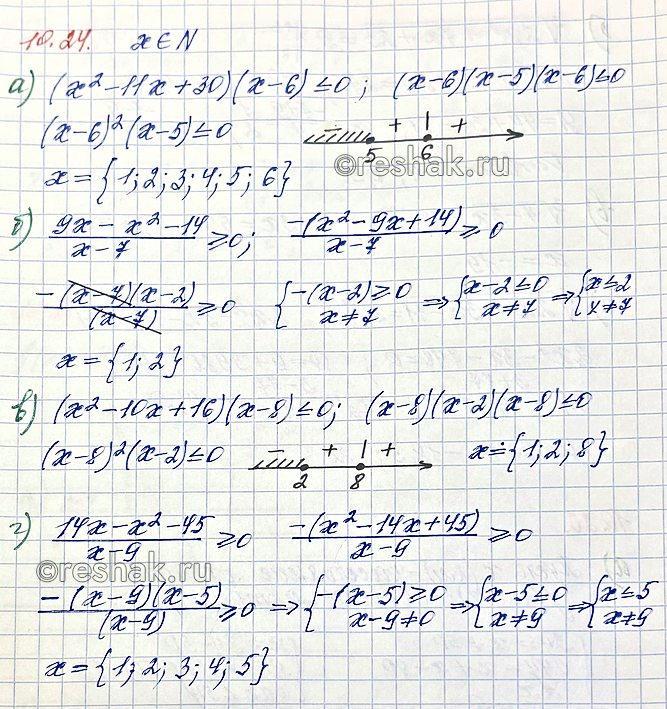 10.24. x ∈ N
а) (x² - 11x + 30)(x - 6) ≤ 0; (x - 6)(x - 5)(x - 6) ≤ 0
(x - 6)²(x - 5) ≤ 0 - + + 5 6
x = {1; 2; 3; 4; 5; 6}
©reshak.ru
б) (9x - x² - 14)/(x - 7) ≥ 0; (-(x² - 9x + 14))/(x - 7) ≥ 0
(-(x - 7)(x - 2))/((x - 7)) ≥ 0 {-(x - 2) ≥ 0 x ≠ 7 ⇒ {x - 2 ≤ 0 x ≠ 7 ⇒ {x ≤ 2 x ≠ 7
x = {1; 2}
в) (x² - 10x + 16)(x - 8) ≤ 0; (x - 8)(x - 2)(x - 8) ≤ 0
(x - 8)²(x - 2) ≤ 0 - + + 2 8 x = {1; 2; 8}
г) (14x - x² - 45)/(x - 9) ≥ 0 (-(x² - 14x + 45))/(x - 9) ≥ 0
©reshak.ru
(-(x - 9)(x - 5))/((x - 9)) ≥ 0 ⇒ {-(x - 5) ≥ 0 x - 9 ≠ 0 ⇒ {x - 5 ≤ 0 x ≠ 9 ⇒ {x ≤ 5 x ≠ 9
x = {1; 2; 3; 4; 5}